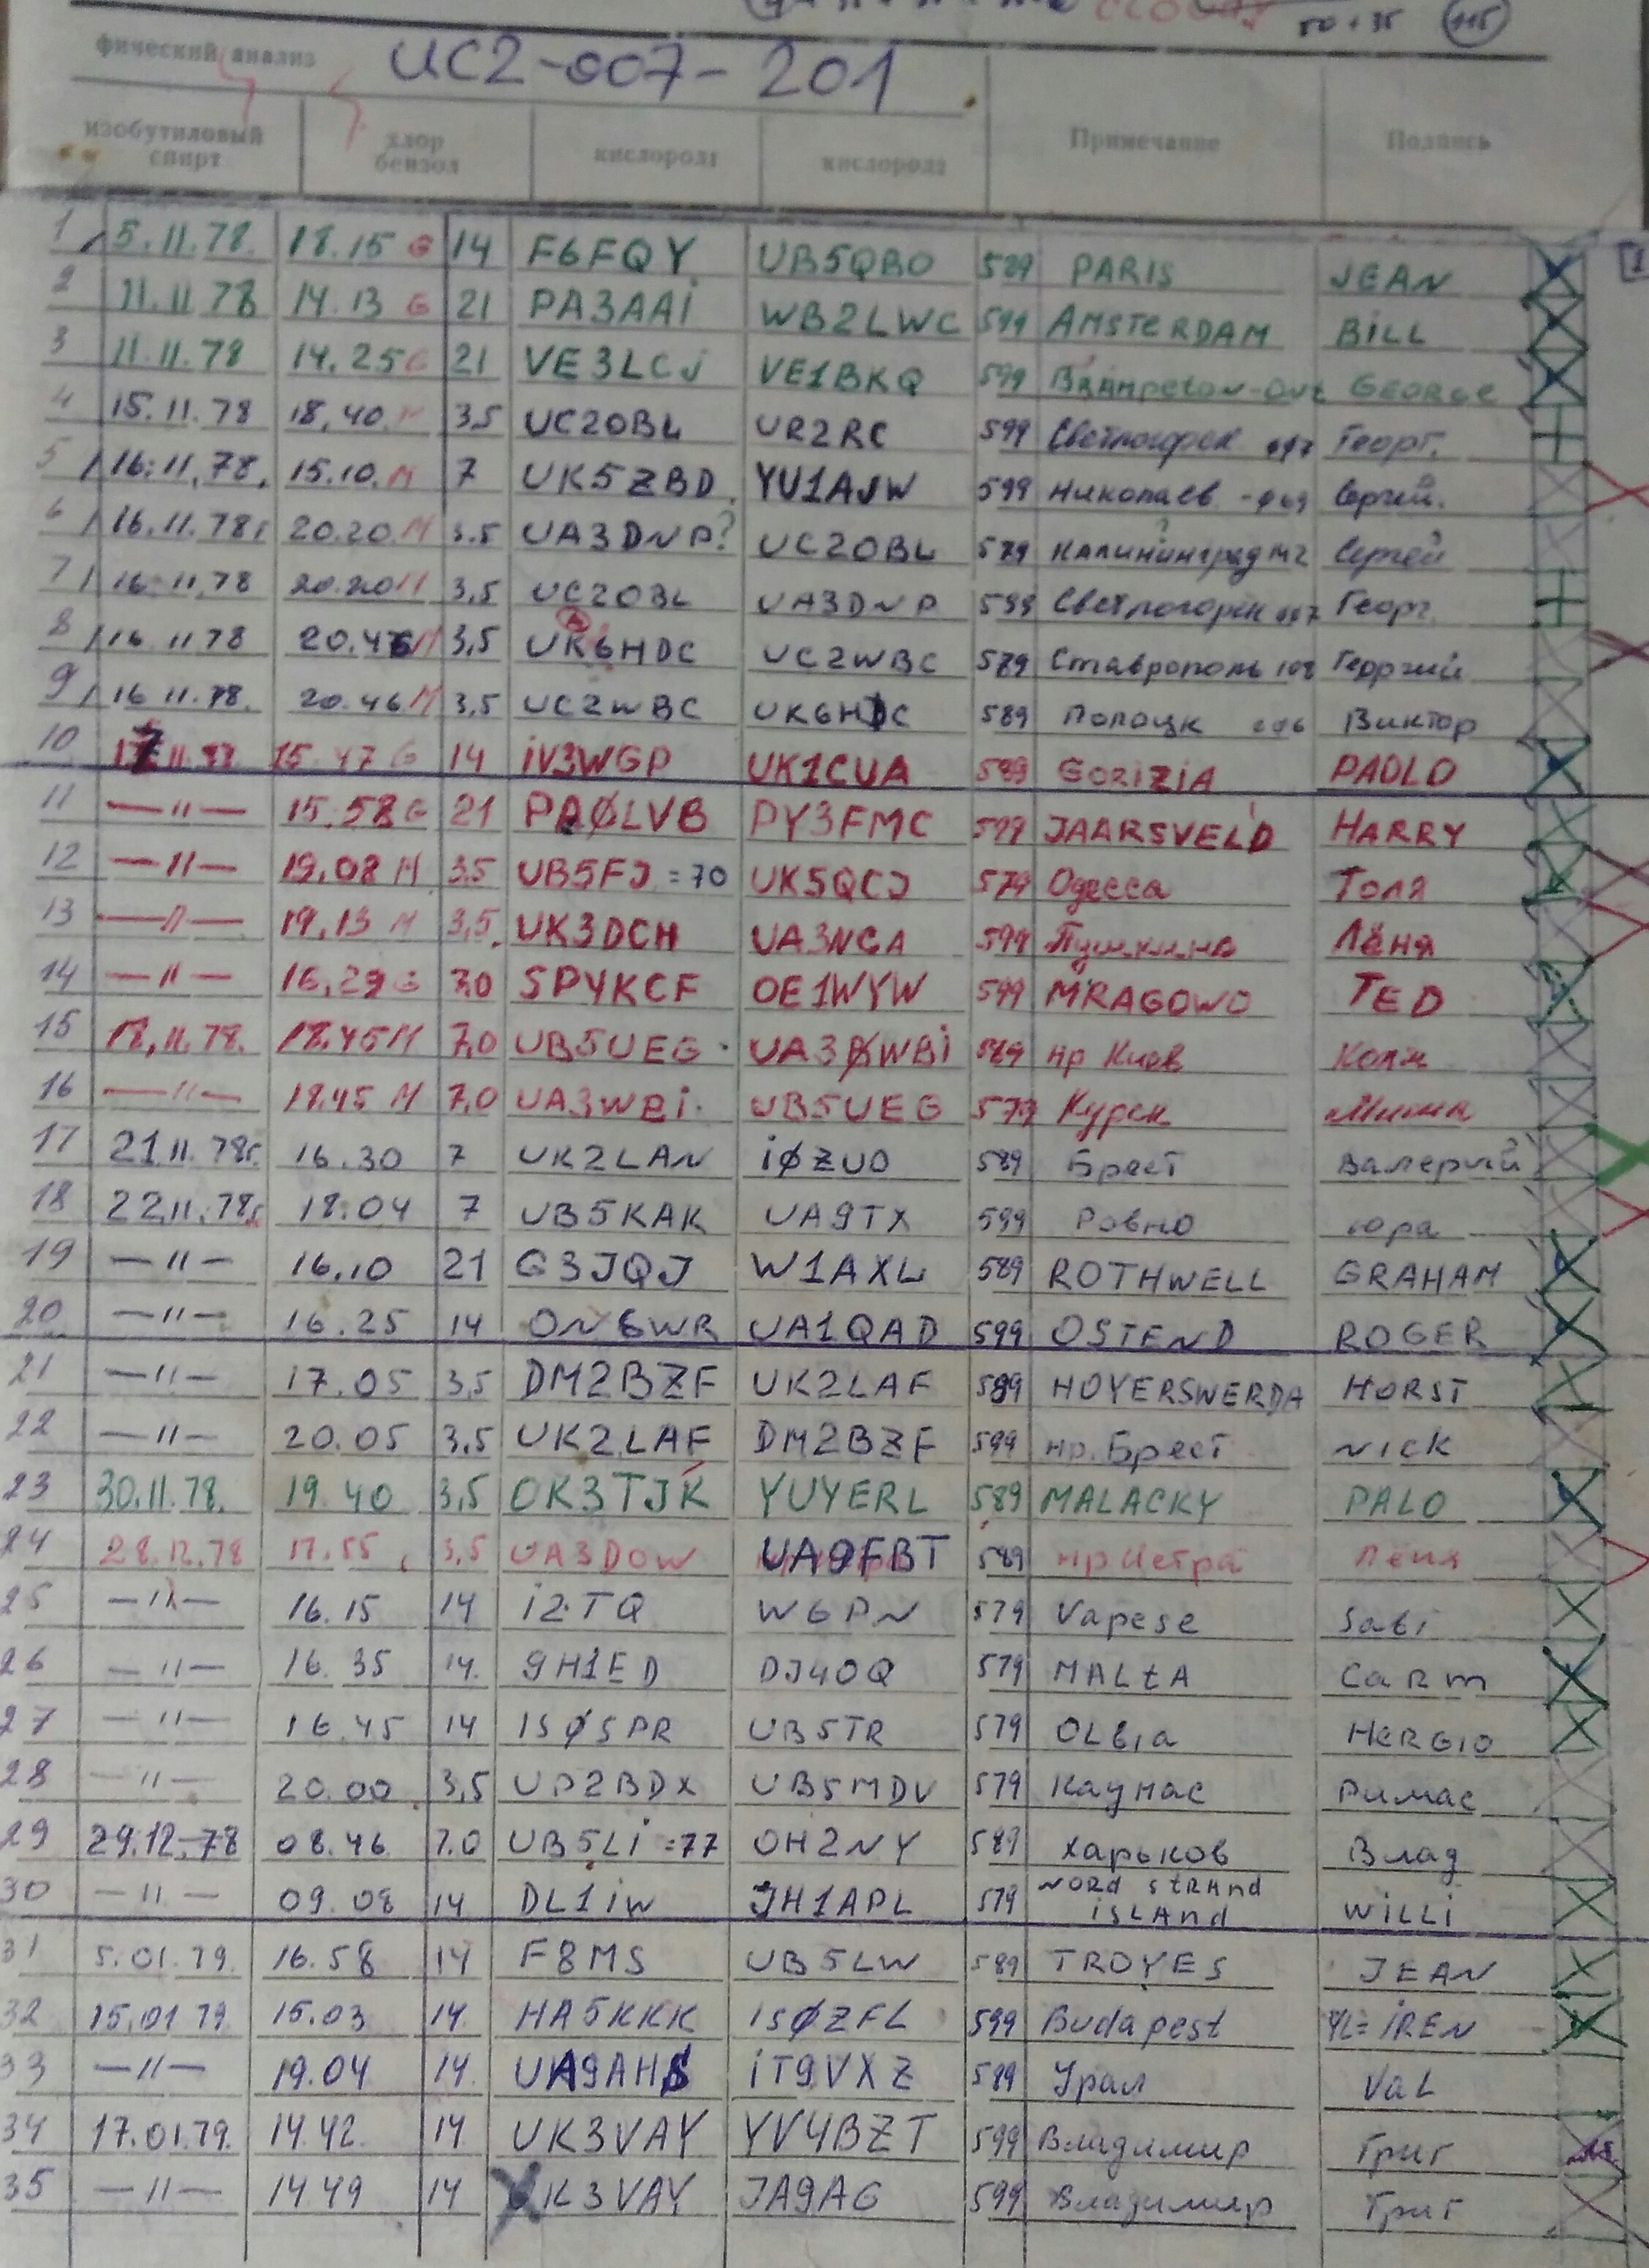 50+35 115
фический анализ UC2-007-201
изобутиловый спирт хлор бензол кислород1 кислород2 Примечание Подпись
1 5.11.78. 18.15 G 14 F6FQY UB5QBO 589 PARIS JEAN
2 11.11.78 14.13 G 21 PA3AAi WB2LWC 599 AMSTERDAM BiLL
3 11.11.78 14.25 G 21 VE3LCJ VE1BKQ 599 GEORGE
4 15.11.78 18,40 M 3,5 UC2OBL UR2RC 599 Светлогорск 007 Георг.
5 16.11.78. 15.10. M 7 UK5ZBD YU1AJW 599 Николаев -069 Сергей.
6 16.11.78г 20.20 M 3.5 UA3DNP? UC2OBL 579 Калининград М2 Сергей
7 16.11.78 20.20 M 3,5 UC2OBL UA3DNP 599 Светлогорск 007 Георг.
8 16.11 78 20.46 M 3,5 UK6HDC UC2WBC 579 Ставрополь 108 Георгий
9 16 11.78. 20.46 M 3,5 UC2WBC UK6HDC 589 Полоцк 006 Виктор
10 17.11.78 15.47 G 14 iV3WGP UK1CUA 589 GORiZiA PAOLO
11 —"— 15.58 G 21 PAØLVB PY3FMC 599 JAARSVELD HARRY
12 —"— 19.08 M 3,5 UB5FJ =70 UK5QCJ 579 Одесса Толя
13 —"— 19,13 M 3,5. UK3DCH UA3NCA 599 Пушкино Лёня
14 —"— 16,29 G 7,0 SP4KCF OE1WYW 599 MRAGOWO TED
15 18.11.78. 18.45 M 7,0 UB5UEG UA3WBi 589 нр Киев Коля
16 —"— 18.45 M 7,0 UA3WBi. UB5UEG 579 Курск Миша
17 21.11.78г. 16.30 7 UK2LAN iØZUO 589 Брест Валерий
18 22.11.78г. 18.04 7 UB5KAK UA9TX 599 Ровно Юра
19 —"— 16.10 21 G3JQJ W1AXL 589 ROTHWELL GRAHAM
20 —"— 16.25 14 ON6WR UA1QAD 599 OSTEND ROGER
21 —"— 17.05 3,5 DM2BZF UK2LAF 589 HOYERSWERDA HORST
22 —"— 20.05 3,5 UK2LAF DM2BZF 599 нр. Брест NiCK
23 30.11.78. 19.40 3,5 OK3TJK YUYERL 589 MALACKY PALO
24 28.12.78 17.55 3,5 UA3DOW UA9FBT 589 нр Истра Лёня
25 —"— 16.15 14 i2TQ W6PN 579 Vapese Sabi
26 —"— 16.35 14. 9H1ED DJ4OQ 579 MALtA CaRm
27 —"— 16.45 14 ISØSPR UB5TR 579 OLbia HERGIO
28 —"— 20.00 3,5 UP2BDX UB5MDV 579 Каунас Римас
29 29.12.78 08.46 7.0 UB5Li =77 OH2NY 589 Харьков Влад
30 —"— 09.08 14 DL1iW JH1APL 579 NORd StRAnd iSLAnd WiLLi
31 5.01.79. 16.58 14 F8MS UB5LW 589 TROYES JEAN
32 15.01 79 15.03 14. HA5KKK ISØZFL 599 Budapest YL= iREN
33 —"— 19.04 14. UA9AHS iT9VXZ 589 Урал VaL
34 17.01.79. 14.42. 14. UK3VAY YV4BZT 599 Владимир Григ
35 —"— 14 49 14 UK3VAY JA9AG 599 Владимир Григ